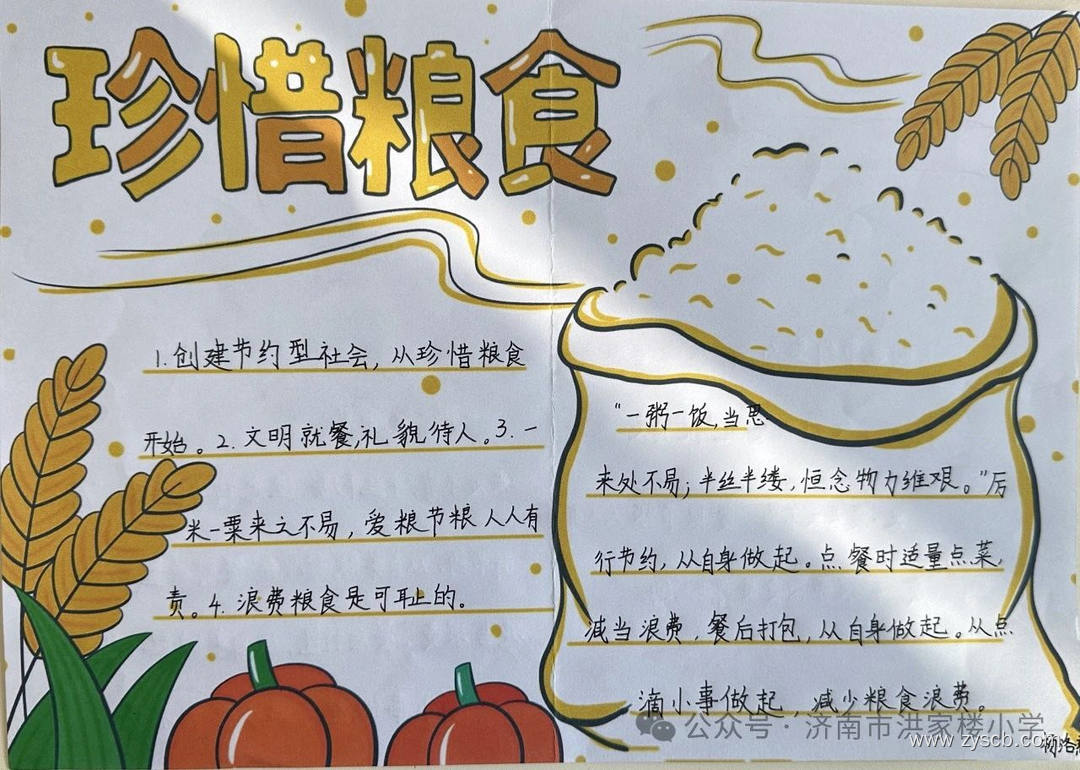 珍惜粮食
1.创建节约型社会,从珍惜粮食
开始。2.文明就餐,礼貌待人。3.一
米一粟来之不易,爱粮节粮人人有
责。4.浪费粮食是可耻的。
“一粥一饭,当思
来处不易;半丝半缕,恒念物力维艰。”厉
行节约,从自身做起。点餐时适量点菜,
减当浪费,餐后打包,从自身做起。从点
滴小事做起,减少粮食浪费。
公众号·济南市洪家楼小学
www.zyscb.com